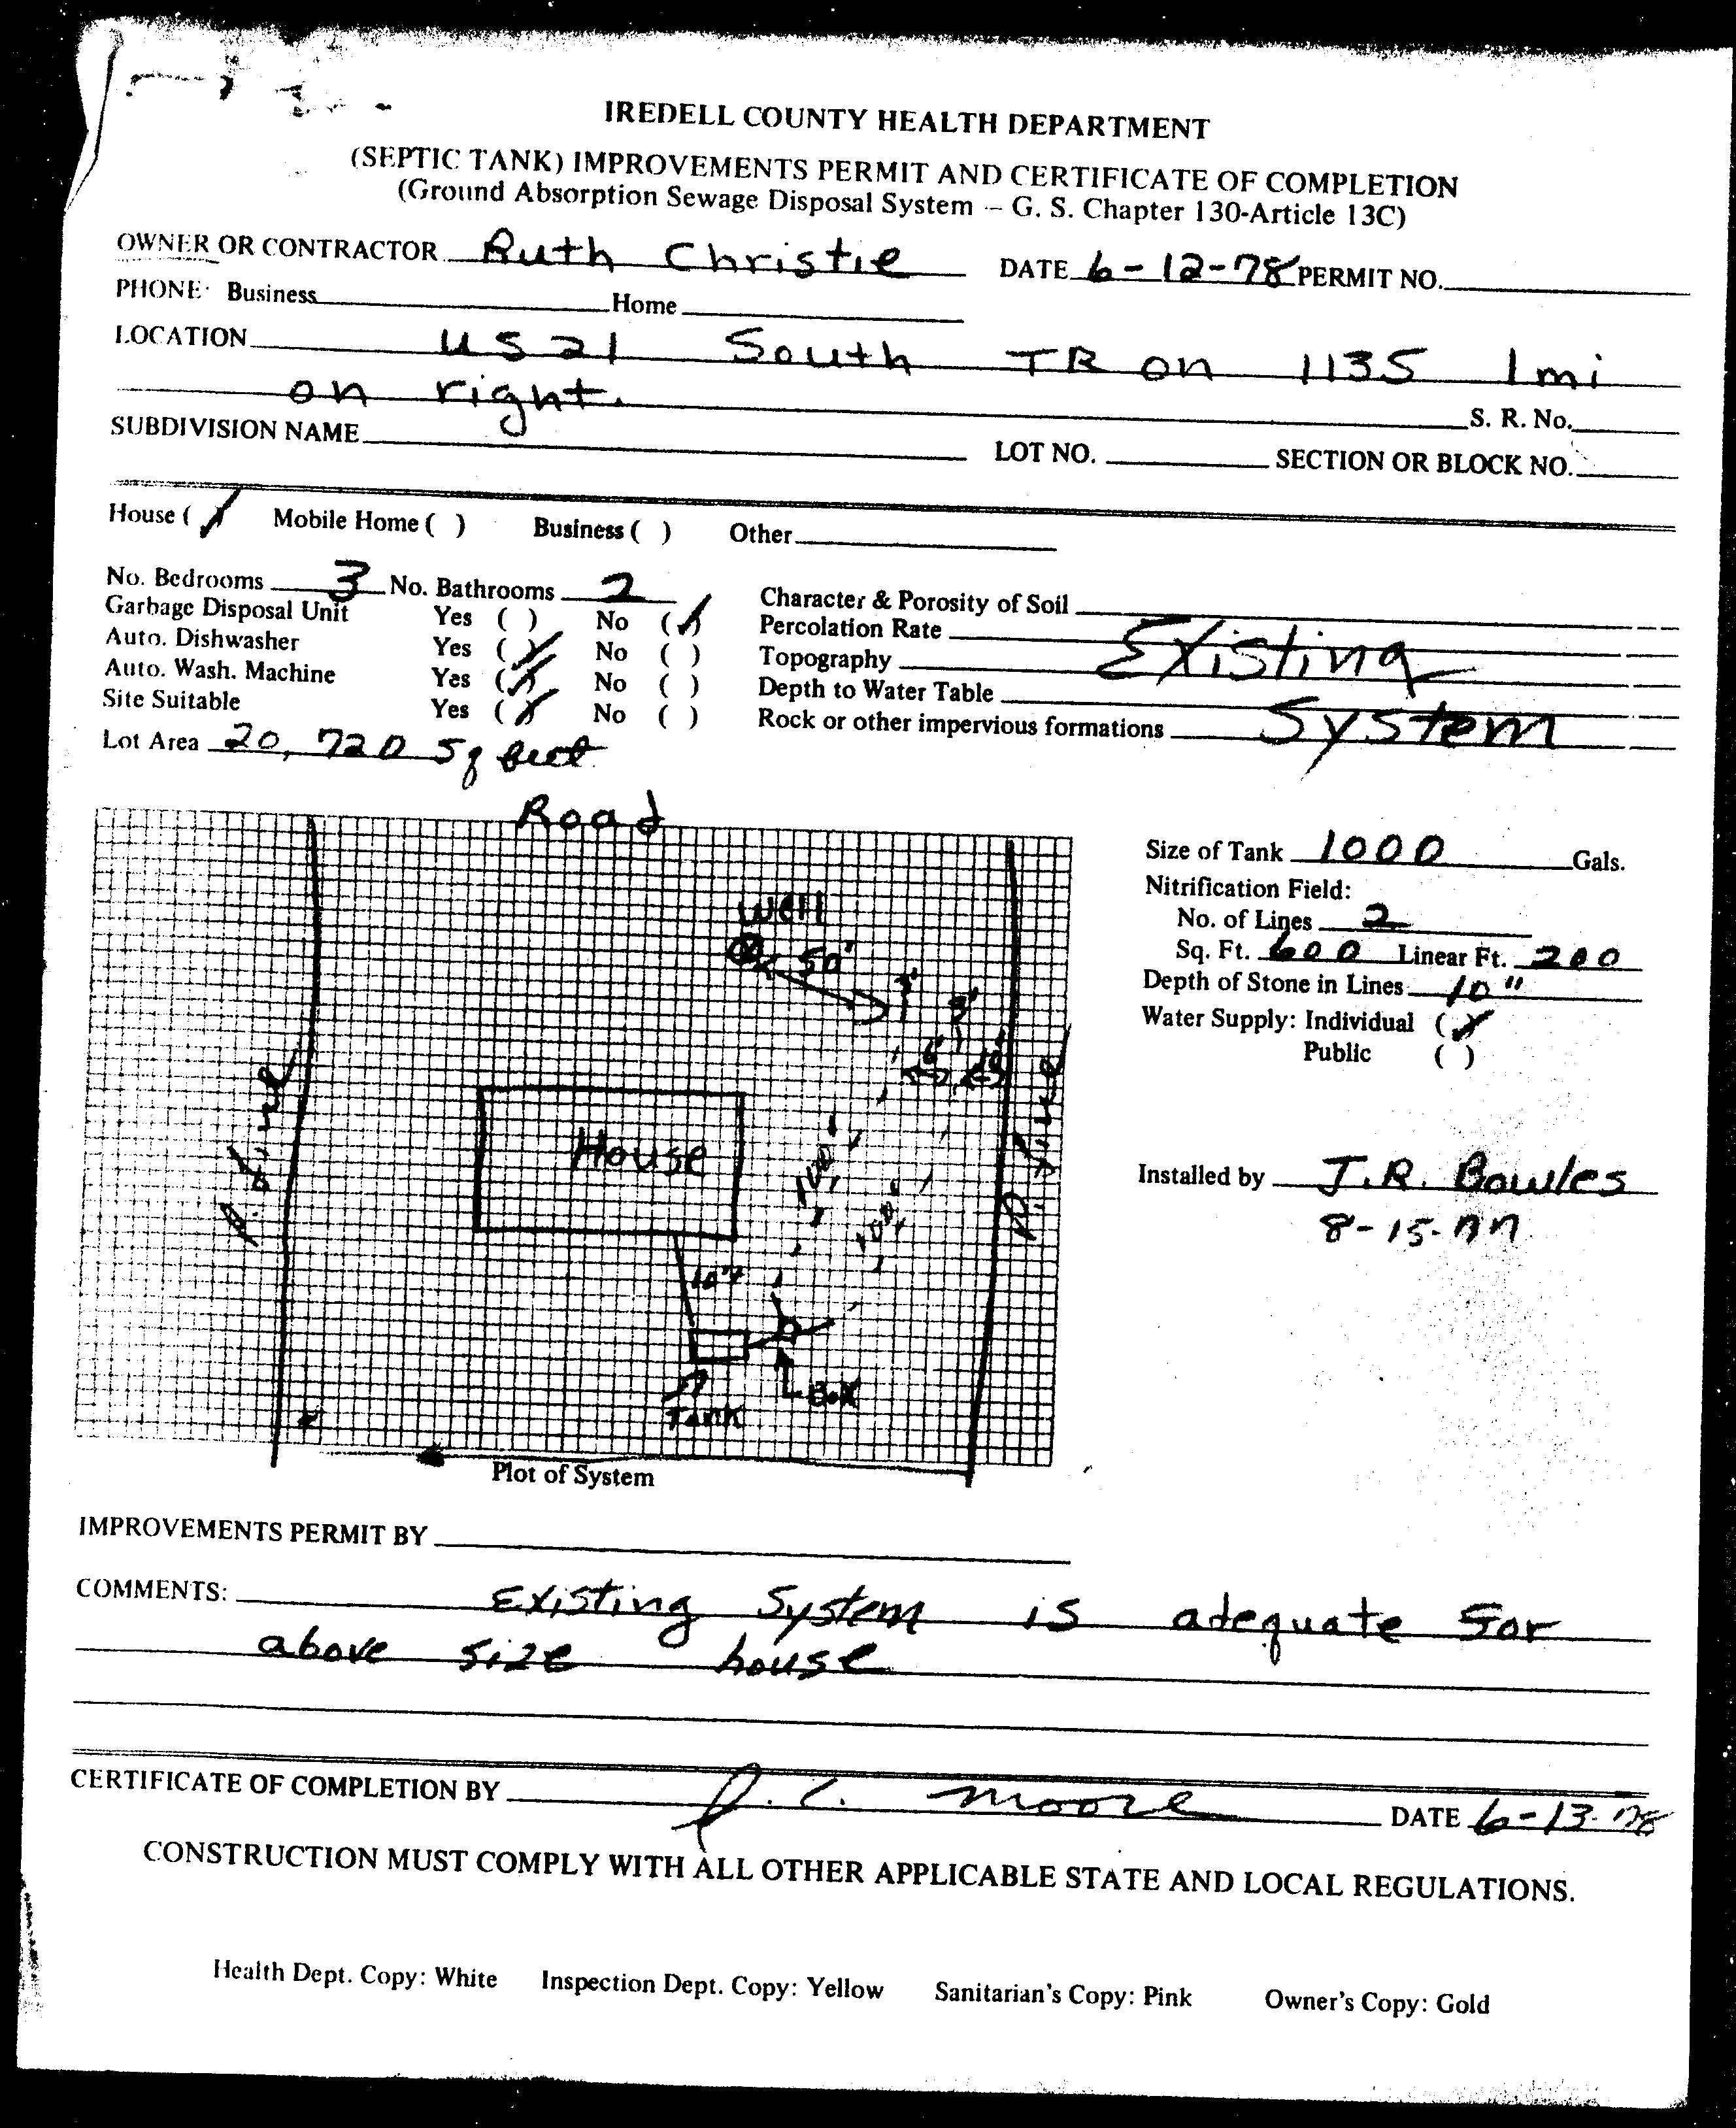 IREDELL COUNTY HEALTH DEPARTMENT
(SEPTIC TANK) IMPROVEMENTS PERMIT AND CERTIFICATE OF COMPLETION
(Ground Absorption Sewage Disposal System -- G. S. Chapter 130-Article 13C)
OWNER OR CONTRACTOR Ruth Christie DATE 6-12-78 PERMIT NO.
PHONE: Business Home
LOCATION US 21 South TR on 1135 1 mi
on right. S. R. No.
SUBDIVISION NAME LOT NO. SECTION OR BLOCK NO.
House (✓) Mobile Home ( ) Business ( ) Other
No. Bedrooms 3 No. Bathrooms 2 Character & Porosity of Soil
Garbage Disposal Unit Yes ( ) No (✓) Percolation Rate Existing
Auto. Dishwasher Yes (✓) No ( ) Topography
Auto. Wash. Machine Yes (✓) No ( ) Depth to Water Table
Site Suitable Yes (✓) No ( ) Rock or other impervious formations System
Lot Area 20,720 Sq feet
Road
Size of Tank 1000 Gals.
Nitrification Field:
No. of Lines 2
Sq. Ft. 600 Linear Ft. 200
Depth of Stone in Lines 10"
Water Supply: Individual (✓)
Public ( )
Well
50'
3'
3'
6'
10'
P. Line
P. Line
House
100'
100'
10'+
Box
Tank
Installed by J.R. Bowles
8-15-77
Plot of System
IMPROVEMENTS PERMIT BY
COMMENTS: Existing System is adequate for
above size house
CERTIFICATE OF COMPLETION BY J. C. Moore DATE 6-13-78
CONSTRUCTION MUST COMPLY WITH ALL OTHER APPLICABLE STATE AND LOCAL REGULATIONS.
Health Dept. Copy: White Inspection Dept. Copy: Yellow Sanitarian's Copy: Pink Owner's Copy: Gold